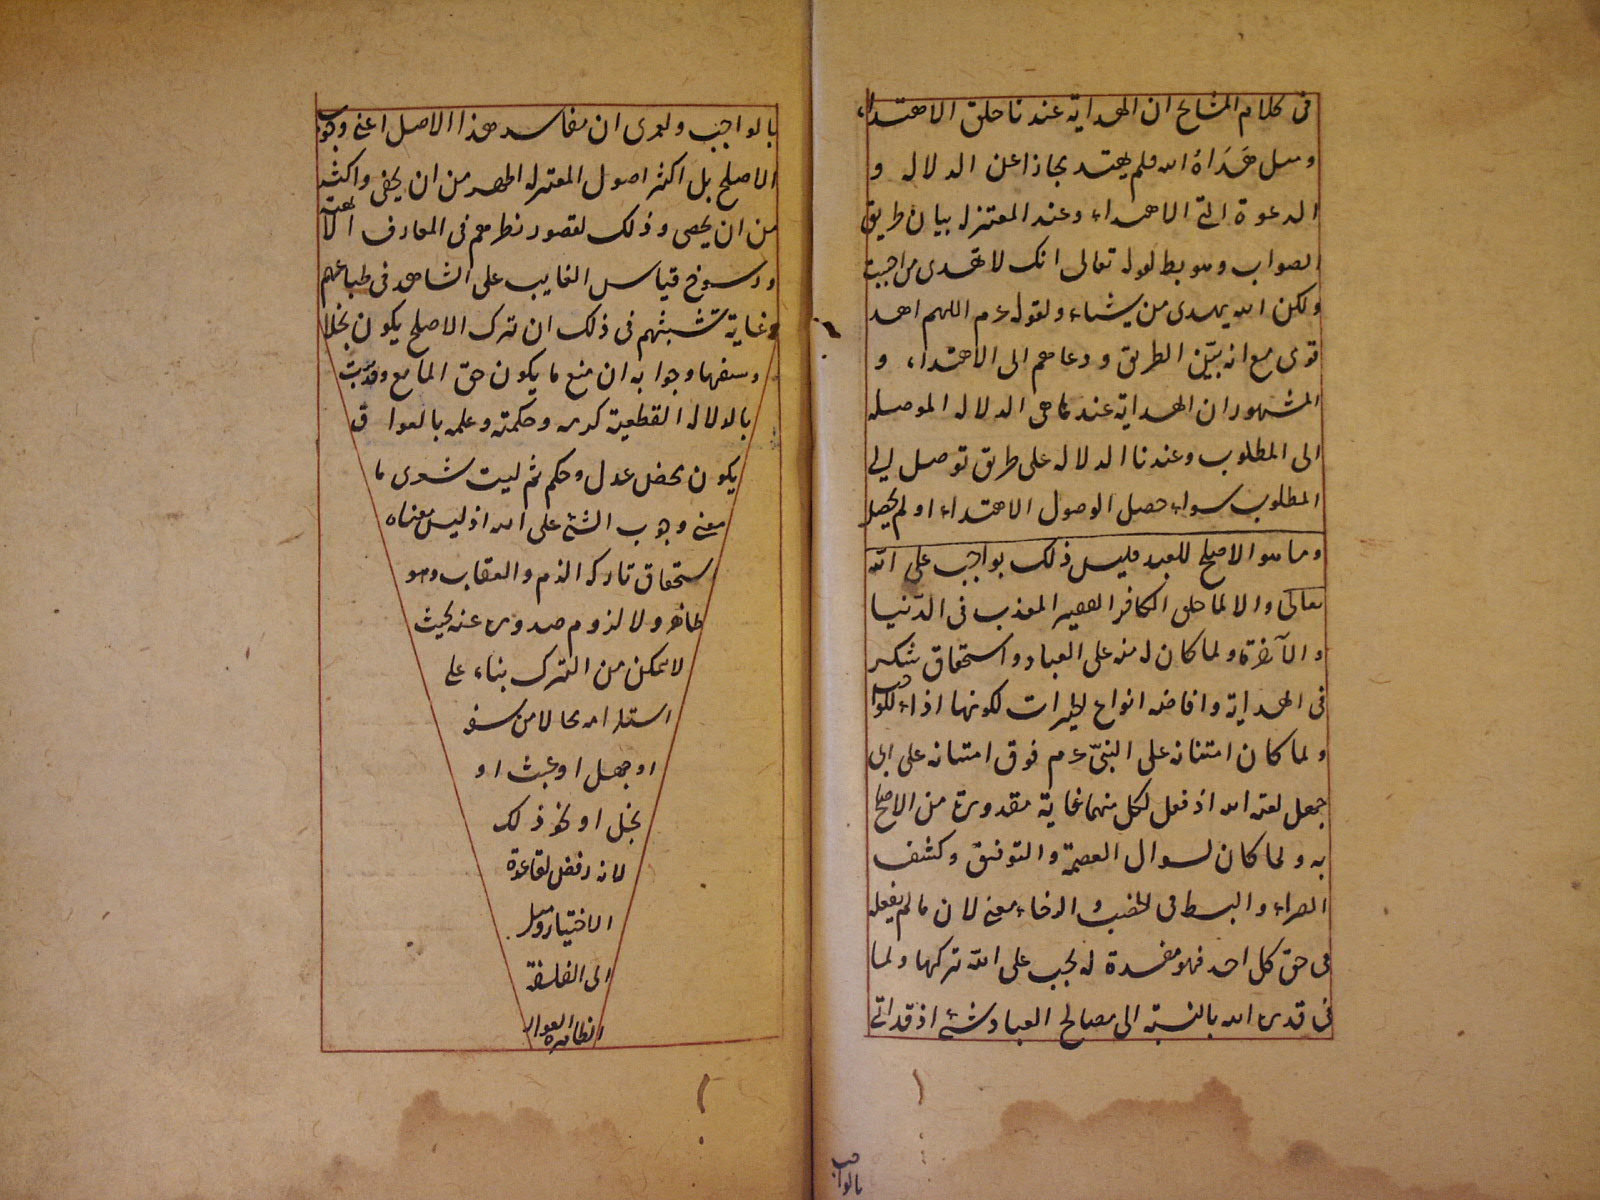 فى كلام المشايخ ان الهداية عندنا خلق الاهتداء
ومثل هَدَاهُ الله فلم يهتد مجاز اعن الدلالة و
الدعوة الى الاهتداء وعند المعتزلة بيان طريق
الصواب وهو بط لقوله تعالى انك لا تهدى من احببت
ولكن الله يهدى من يشاء ولقوله ءم اللهم اهد
قومى مع انه بيّن الطريق ودعاهم الى الاهتداء و
المشهور ان الهداية عندهم هى الدلالة الموصلة
الى المطلوب وعندنا الدلالة على طريق توصل الى
المطلوب سواء حصل الوصول الاهتداء او لم يحصل
وما هو الاصلح للعبد فليس ذلك بواجب على الله
تعالى والا لما خلق الكافر الفقير المعذب فى الدّنيا
والآخرة ولما كان له منة على العباد واستحقاق شكر
فى الهداية وافاضة انواع الخيرات لكونها اداء للواجب
ولما كان امتنانه على النبىّ ءم فوق امتنانه على ابى
جهل لعنه الله اذ فعل لكل منهما غاية مقدوره من الاصلح
به ولما كان لسوال العصمة والتوفيق وكشف
الضراء والبسط فى الخصب والرخاء معنى لان ما لم يفعله
فى حق كل احد فهو مفسدة له يجب على الله تركها ولما
فى قدرة الله بالنسبة الى مصالح العباد شئ اذ قد اتى
بالواجب
بالواجب ولعمرى ان مفاسد هذا الاصل اعنى وجوب
الاصلح بل اكثر اصول المعتزلة اظهر من ان يخفى واكثر
من ان يحصى وذلك لقصور نظرهم فى المعارف الالهية
ورسوخ قياس الغايب على الشاهد فى طباعهم
وغاية تشبثهم فى ذلك ان ترك الاصلح يكون بخلا
وسفها وجوابه ان منع ما يكون حق المانع وقد ثبت
بالدلالة القطعية كرمه وحكمته وعلمه بالعواقب
يكون محض عدل وحكم ثم ليت شعرى ما
معنى وجوب الشئ على الله اذ ليس معناه
استحقاق تاركه الذم والعقاب وهو
ظاهر ولا لزوم صدوره عنه بحيث
لا يتمكن من الترك بناء على
استلزامه محالا من سفه
او جهل او عبث او
بخل او نحو ذلك
لانه رفض لقاعدة
الاختيار وميل
الى الفلسفة
الظاهرة العوار